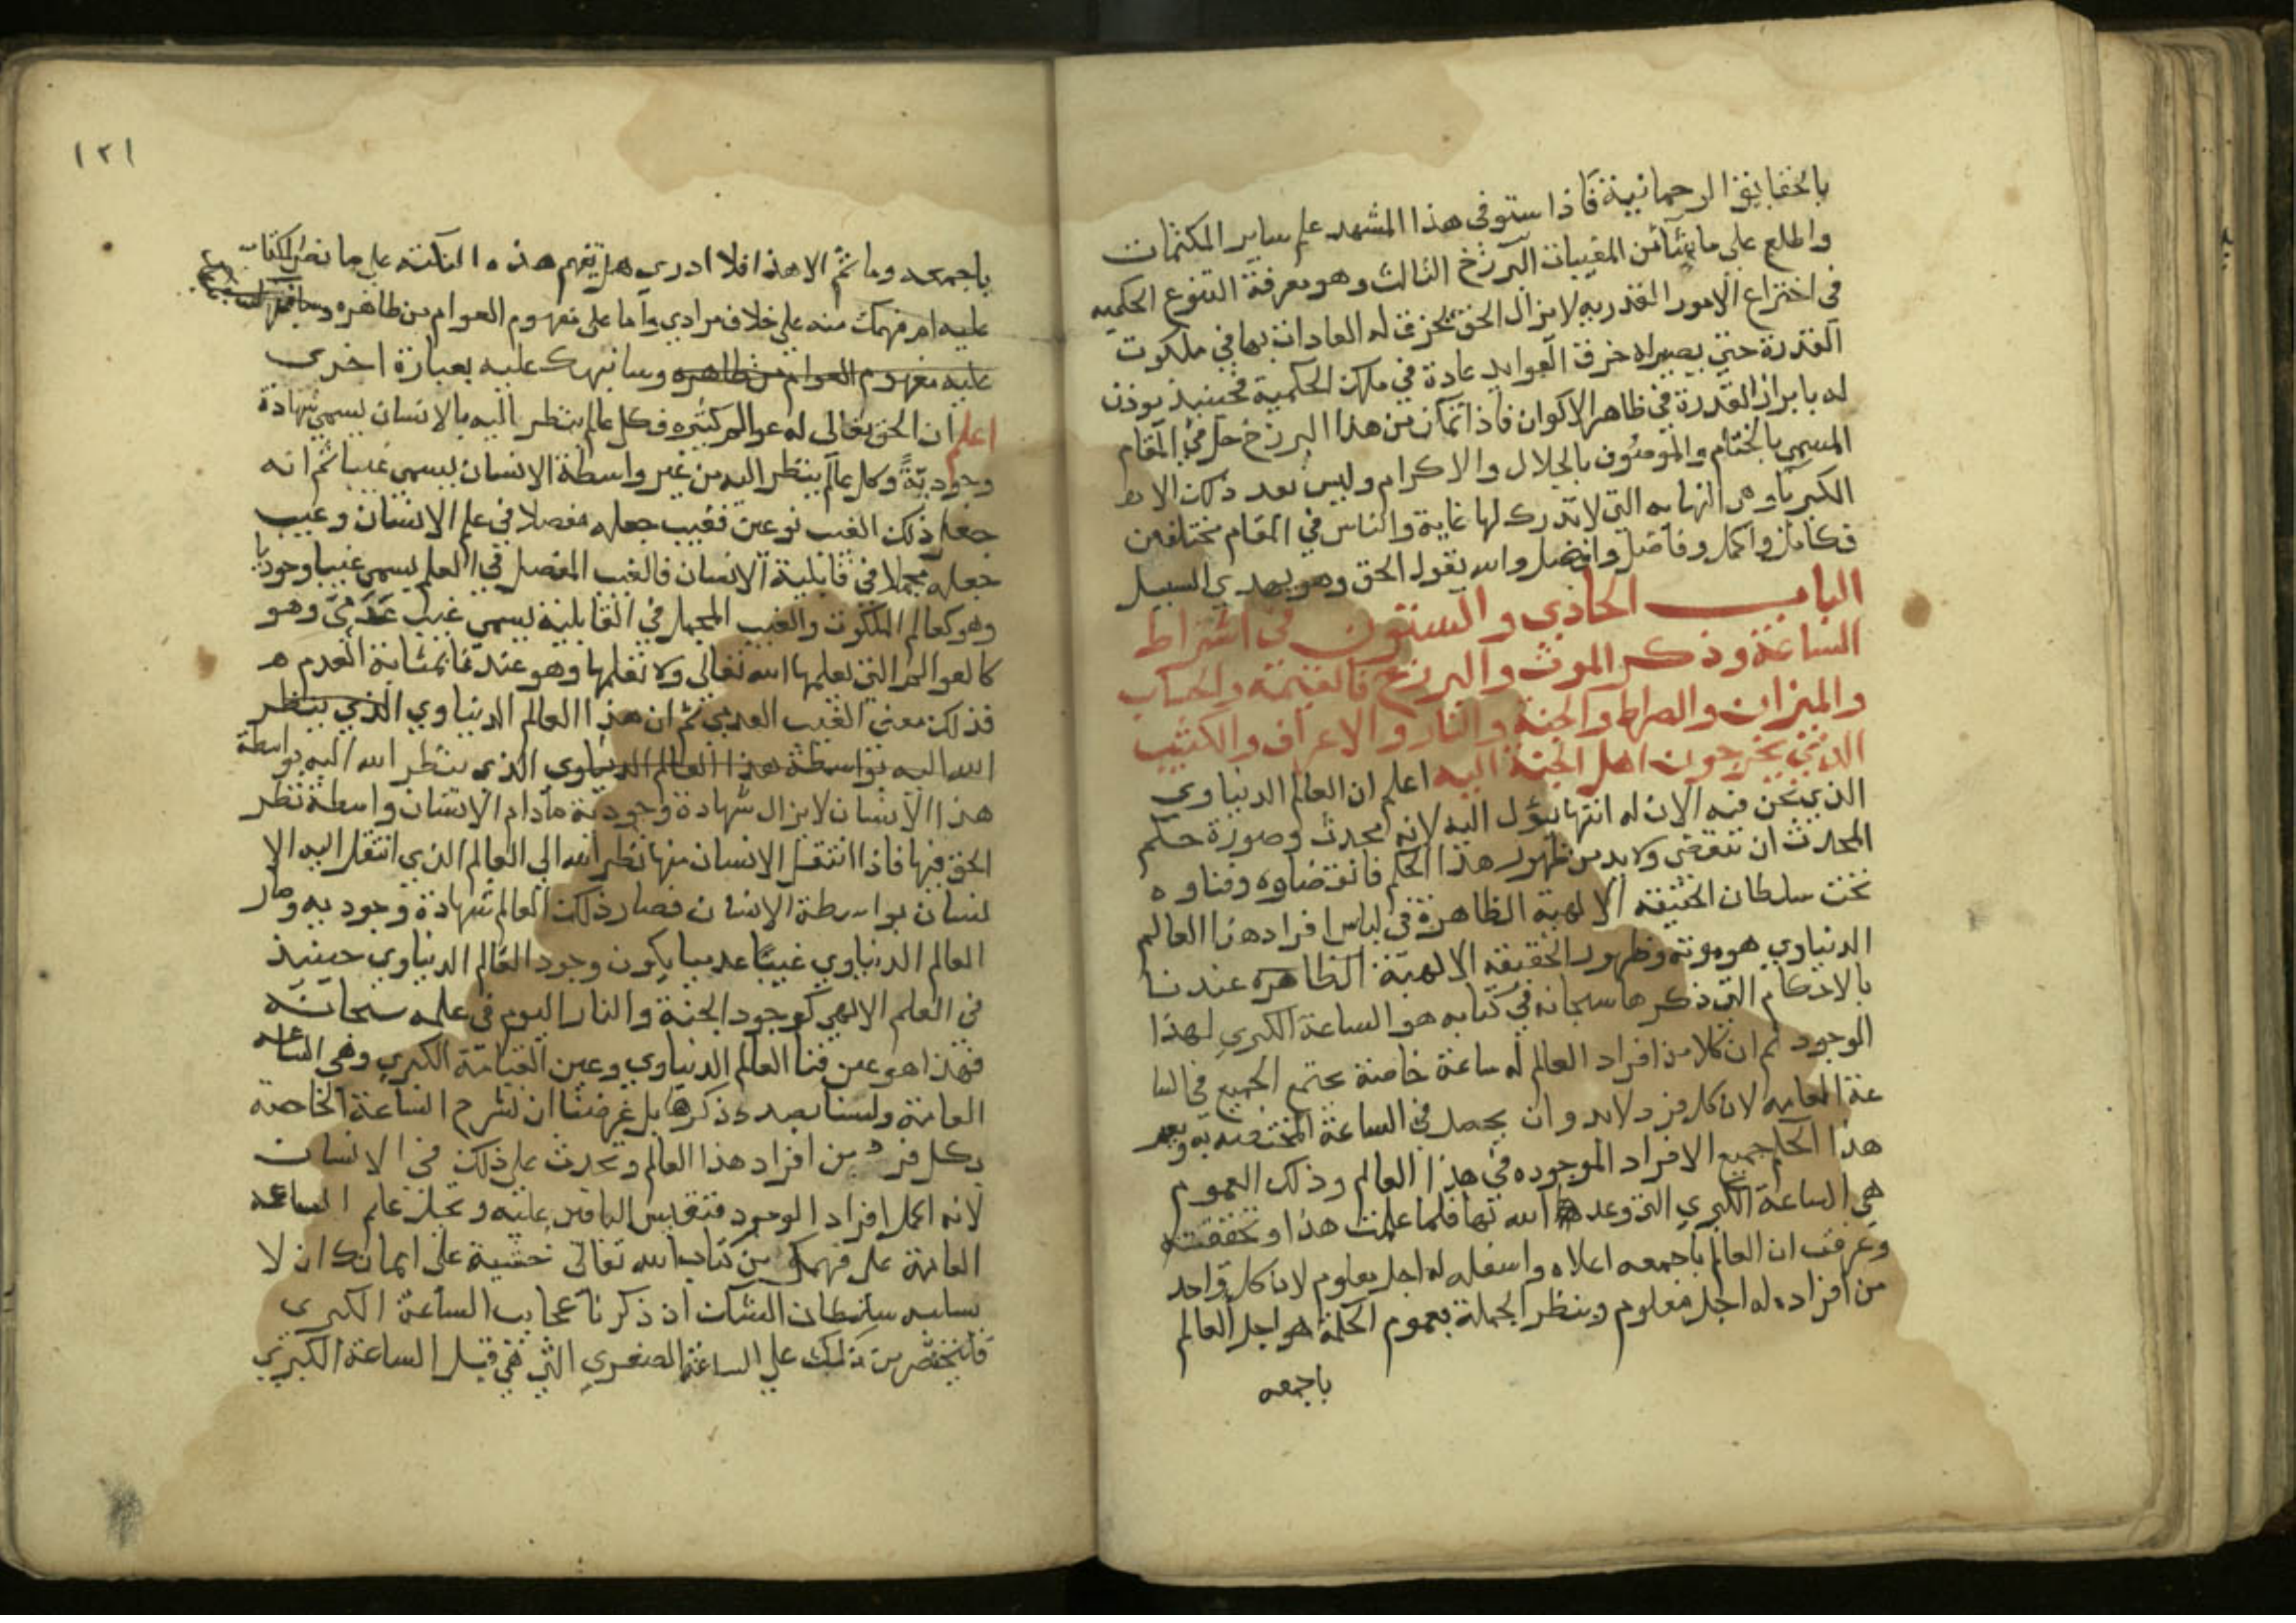 بالحقايق الرحمانية فاذا ستوفى هذا المشهد علم ساير المكتمات
واطلع على ما يشآ من المغيبات البرزخ الثالث وهو معرفة التنوع الحكميه
في اختراع الامور القدريه لا يزال الحق يخرق له العادات بها في ملكوت
القدرة حتى يصير له خرق العوايد عادة في ملك الحكمية فحينيذ يوذن
له بابراز القدرة في ظاهر الاكوان فاذا تمكن من هذا البرزخ حل في المقام
المسمى بالختام والموصوف بالجلال والاكرام وليس بعد ذلك الا هـ
الكبريآ وهي النهايه التي لا تدرك لها غاية والناس في المقام مختلفين
فكامل واكمل وفاضل وافضل والله يقول الحق وهو يهدي السبيل
الباب الحادي والستون في اشراط
الساعة وذكر الموت والبرزخ والقيمة والحساب
والميزان والصراط والجنة والنار والاعراف والكثيب
الذي يخرجون اهل الجنة اليه اعلم ان العالم الدنياوي
الذي نحن فيه الان له انتها يؤل اليه لانه محدث وصورة حكم
المحدث ان تنقضى ولا بد من ظهور هذا الحكم فانقضاوه وفناوه
تحت سلطان الحقيقه الالهية الظاهرة في لباس افراد هذا العالم
الدنياوي هو موته وظهور الحقيقه الالهية الظاهرة عندنا
بالاحكام التي ذكرها سبحانه في كتابه هو الساعة الكبري لهذا
الموجود ثم ان كلا من افراد العالم له ساعة خاصة يجتمع الجميع في السا
عة العامه لان كل فرد لابد وان يحصل في الساعة المختصه به ويعم
هذا الحكم جميع الافراد الموجوده في هذا العالم وذلك العموم
هي الساعة الكبري التي وعد الله بها فلما علمت هذا وتحققته
وعرفت ان العالم باجمعه اعلاه واسفله له اجل معلوم لان كل واحد
من افراده له اجل معلوم وينظر الجملة بعموم الحكمة هو اجل العالم
باجمعه
١٢١
باجمعه وما ثم الا هذا فلا ادري هل يفهم هذه النكته على ما نص الكتاب
عليه ام فهمك منه على خلاف مرادي واما على مفهوم العوام من ظاهره
عليه مفهوم العوام من ظاهره وسانبهك عليه بعبارة اخرى
اعلم ان الحق تعالى له عوالم كثيره فكل عالم ينظر اليه بالانسان يسمى شهادة
وجودية وكل عالم ينظر اليه من غير واسطة الانسان يسمى غيبا ثم انه
جعل ذلك الغيب نوعين فغيب جعله مفصلا في علم الانسان وغيب
جعله مجملا في قابلية الانسان فالغيب المفصل في العلم يسمى غيبا وجوديا
وهو كعالم الملكوت والغيب المجمل في القابلية يسمى غيب عدمي وهو
كالعوالم التي يعلمها الله تعالى ولا نعلمها وهو عندنا بمثابة العدم هـ
فذلك معنى الغيب العدمي ثم ان هذا العالم الدنياوي الذي ينظر
الله اليه بواسطة هذا العالم الدنياوي الذي ينظر الله اليه بواسطة
هذا الانسان لا يزال شهادة وجودية مادام الانسان واسطة نظر
الحق فيها فاذا انتقل الانسان منها نظر الله الى العالم الذي انتقل اليه الا
نسان بواسطة الانسان فصار ذلك العالم شهادة وجوديه وصار
العالم الدنياوي غيبا عدميا يكون وجود العالم الدنياوي حينيذ
في العلم الالهي كوجود الجنة والنار اليوم في علمه سبحانه
فهذا هو عين فنا العالم الدنياوي وعين القيامة الكبري وهي الساعه
العامة ولسنا بصدد ذكرها بل غرضنا ان نشرح الساعة الخاصة
بكل فرد من افراد هذا العالم ونحدث على ذلك في الانسان
لانه اكمل افراد الوجود فتقيس الباقين عليه ونحيل علم الساعه
العامة على فهمك من كتاب الله تعالى خشية على ايمانك ان لا
يسلبه سلطان الشك ان ذكرنا عجايب الساعة الكبري
فلنختصر من ذلك على الساعة الصغري التي هي قبل الساعة الكبري